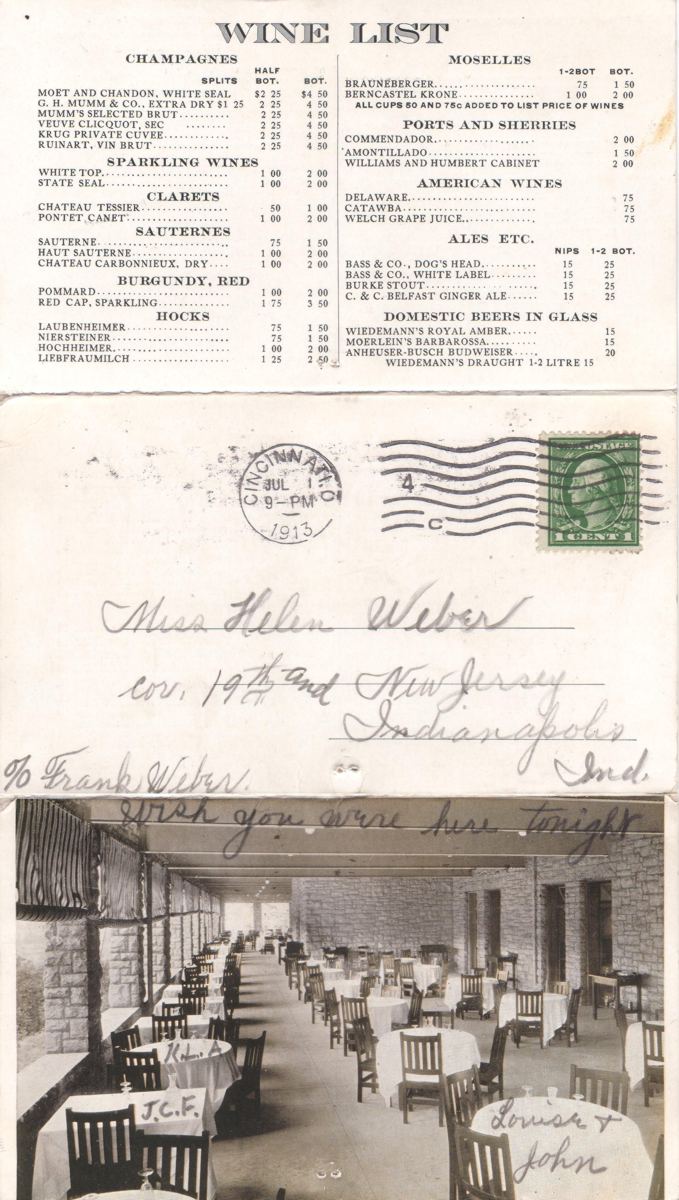 WINE LIST
CHAMPAGNES
SPLITS HALF BOT. BOT.
MOET AND CHANDON, WHITE SEAL $2 25 $4 50
G. H. MUMM & CO., EXTRA DRY $1 25 2 25 4 50
MUMM'S SELECTED BRUT.......... 2 25 4 50
VEUVE CLICQUOT, SEC ........ 2 25 4 50
KRUG PRIVATE CUVEE............ 2 25 4 50
RUINART, VIN BRUT............ 2 25 4 50
SPARKLING WINES
WHITE TOP.................... 1 00 2 00
STATE SEAL.................. 1 00 2 00
CLARETS
CHATEAU TESSIER.............. 50 1 00
PONTET CANET................ 1 00 2 00
SAUTERNES
SAUTERNE.................... 75 1 50
HAUT SAUTERNE............... 1 00 2 00
CHATEAU CARBONNIEUX, DRY.... 1 00 2 00
BURGUNDY, RED
POMMARD..................... 1 00 2 00
RED CAP, SPARKLING.......... 1 75 3 50
HOCKS
LAUBENHEIMER................ 75 1 50
NIERSTEINER................. 75 1 50
HOCHHEIMER.................. 1 00 2 00
LIEBFRAUMILCH............... 1 25 2 50
MOSELLES
1-2BOT BOT.
BRAUNEBERGER................ 75 1 50
BERNCASTEL KRONE............ 1 00 2 00
ALL CUPS 50 AND 75c ADDED TO LIST PRICE OF WINES
PORTS AND SHERRIES
COMMENDADOR................. 2 00
AMONTILLADO................. 1 50
WILLIAMS AND HUMBERT CABINET 2 00
AMERICAN WINES
DELAWARE.................... 75
CATAWBA..................... 75
WELCH GRAPE JUICE........... 75
ALES ETC.
NIPS 1-2 BOT.
BASS & CO., DOG'S HEAD......... 15 25
BASS & CO., WHITE LABEL....... 15 25
BURKE STOUT.................. 15 25
C. & C. BELFAST GINGER ALE..... 15 25
DOMESTIC BEERS IN GLASS
WIEDEMANN'S ROYAL AMBER...... 15
MOERLEIN'S BARBAROSSA........ 15
ANHEUSER-BUSCH BUDWEISER..... 20
WIEDEMANN'S DRAUGHT 1-2 LITRE 15
CINCINNATI, O
JUL 1
9-PM
1913
4
C
POSTAGE
1 CENT 1
Miss Helen Weber
cor. 19th and New Jersey
Indianapolis
Ind.
c/o Frank Weber.
Wish you were here tonight
K.L.A
J.C.F.
Louise +
John